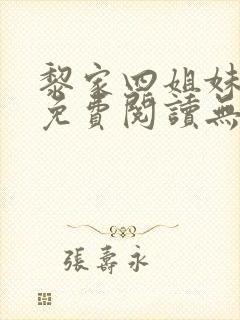 黎家四姐妹
免費閱讀無
張壽永